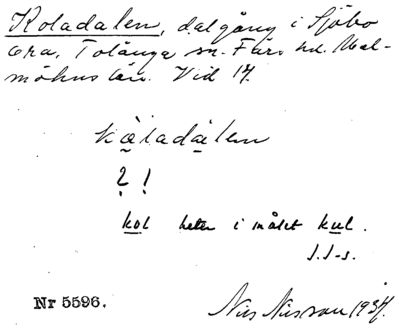 Koladalen, dalgång i Sjöbo
ora, Tolånga sn. Färs hd. Mal-
möhus län. Vid 17.
kòladàlen
? !
kol heter i målet kul.
J.J-s.
Nr 5596.
Nils Nilsson 1934.